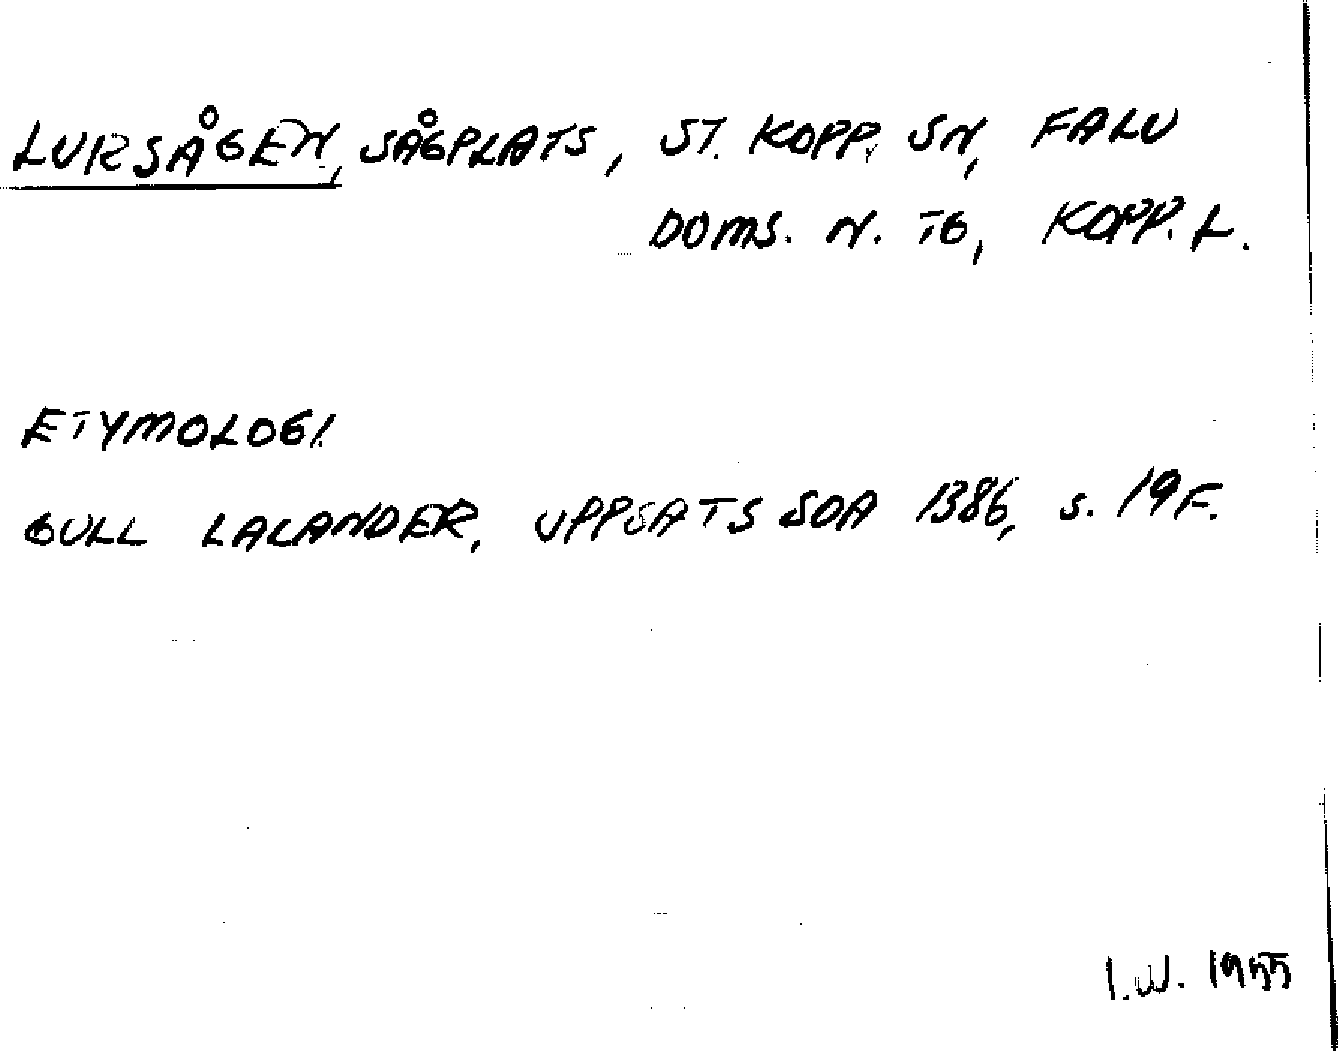 LURSÅGEN, SÅGPLATS, ST. KOPP. SN, FALU
DOMS. N. TG, KOPP. L.
ETYMOLOGI.
GULL LALANDER, UPPSATS SOA 1386, S. 19 F.
I.W. 1955